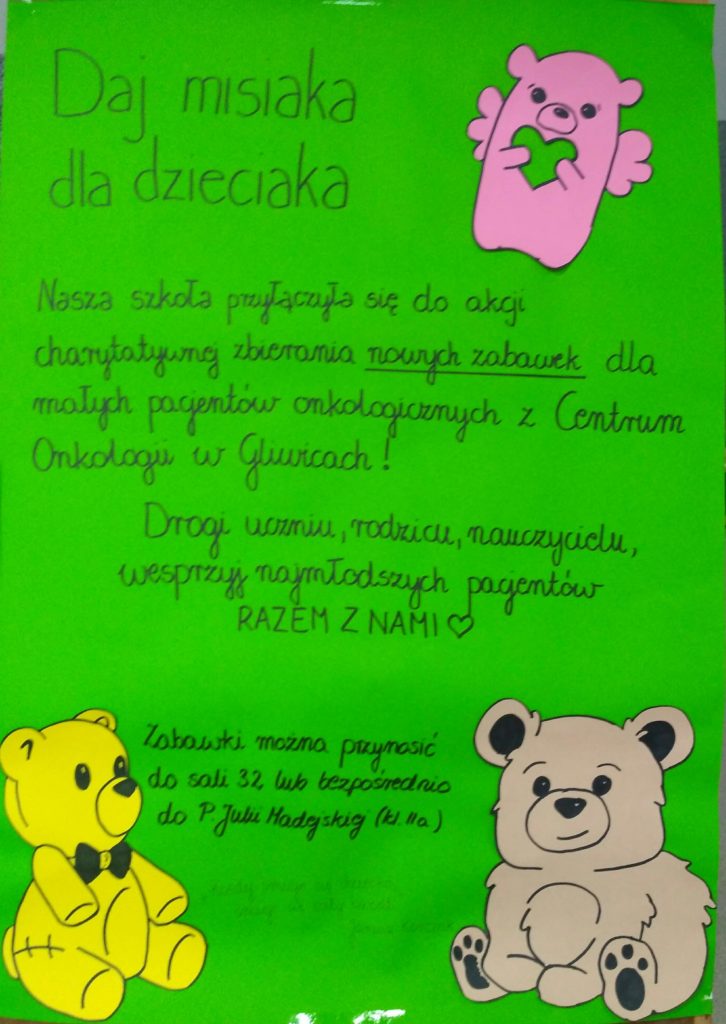 Daj misiaka
dla dzieciaka
Nasza szkoła przyłączyła się do akcji
charytatywnej zbierania nowych zabawek dla
małych pacjentów onkologicznych z Centrum
Onkologii w Gliwicach!
Drogi uczniu, rodzicu, nauczycielu,
wesprzyj najmłodszych pacjentów
RAZEM Z NAMI ♡
Zabawki można przynosić
do sali 32, lub bezpośrednio
do P. Julii Madejskiej (kl. IIa)
śmieje się
się cały świat